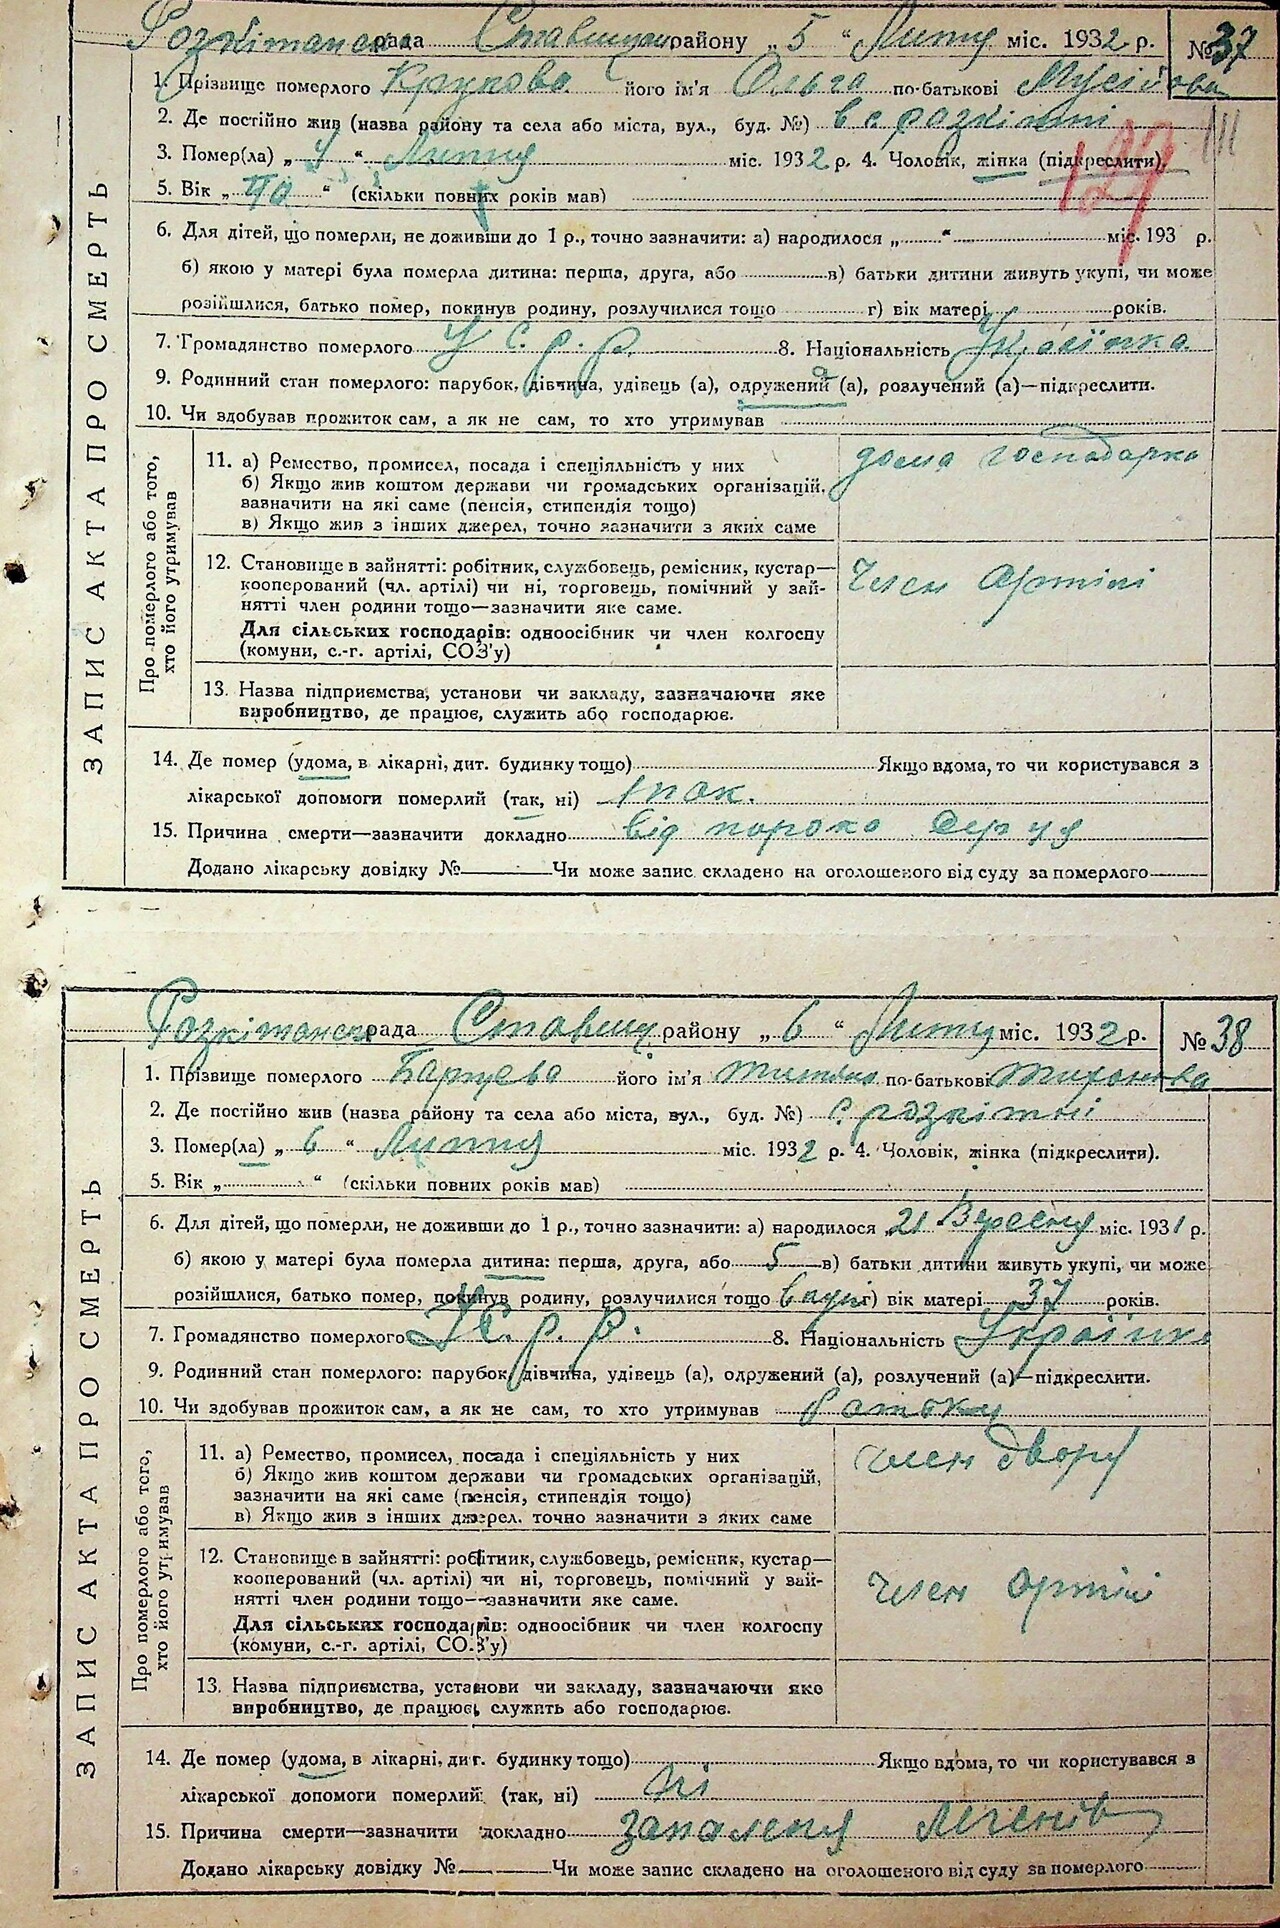 Розкітянська рада Ставищан району „ 5 “ Липця міс. 1932 р. № 37
1. Прізвище померлого його ім'я Ольга по-батькові Мусійовна
2. Де постійно жив (назва району та села або міста, вул., буд. №) в с розкітні
127
3. Помер(ла) „ 4 “ Липця міс. 1932 р. 4. Чоловік, жінка (підкреслити).
5. Вік „ “ (скільки повних років мав)
6. Для дітей, що померли, не доживши до 1 р., точно зазначити: а) народилося „ “ міс. 193 р.
б) якою у матері була померла дитина: перша, друга, або в) батьки дитини живуть укупі, чи може
розійшлися, батько помер, покинув родину, розлучилися тощо г) вік матері років.
7. Громадянство померлого У С. р. р. 8. Національність Українка
9. Родинний стан померлого: парубок, дівчина, удівець (а), одружений (а), розлучений (а)—підкреслити.
10. Чи здобував прожиток сам, а як не сам, то хто утримував
ЗАПИС АКТА ПРО СМЕРТЬ
Про померлого або того, хто його утримував
11. а) Ремество, промисел, посада і спеціяльність у них дома господарка
б) Якщо жив коштом держави чи громадських організацій,
зазначити на які саме (пенсія, стипендія тощо)
в) Якщо жив з інших джерел, точно зазначити з яких саме
12. Становище в зайнятті: робітник, службовець, ремісник, кустар— член артілі
кооперований (чл. артілі) чи ні, торговець, помічний у зай-
нятті член родини тощо—зазначити яке саме.
Для сільських господарів: одноосібник чи член колгоспу
(комуни, с.-г. артілі, СОЗ'у)
13. Назва підприємства, установи чи закладу, зазначаючи яке
виробництво, де працює, служить або господарює.
14. Де помер (удома, в лікарні, дит. будинку тощо) Якщо вдома, то чи користувався з
лікарської допомоги померлий (так, ні) так.
15. Причина смерти—зазначити докладно від пороко серця
Додано лікарську довідку № Чи може запис складено на оголошеного від суду за померлого
Розкітянська рада Ставищ району „ 6 “ Липця міс. 1932 р. № 38
1. Прізвище померлого його ім'я по-батькові
2. Де постійно жив (назва району та села або міста, вул., буд. №) с розкітні
3. Помер(ла) „ 6 “ Липця міс. 1932 р. 4. Чоловік, жінка (підкреслити).
5. Вік „ “ (скільки повних років мав)
6. Для дітей, що померли, не доживши до 1 р., точно зазначити: а) народилося „ 21 “ Вересня міс. 1931 р.
б) якою у матері була померла дитина: перша, друга, або 5 в) батьки дитини живуть укупі, чи може
розійшлися, батько помер, покинув родину, розлучилися тощо г) вік матері 37 років.
7. Громадянство померлого У С. р. р. 8. Національність Українка
9. Родинний стан померлого: парубок, дівчина, удівець (а), одружений (а), розлучений (а)—підкреслити.
10. Чи здобував прожиток сам, а як не сам, то хто утримував батьки
ЗАПИС АКТА ПРО СМЕРТЬ
Про померлого або того, хто його утримував
11. а) Ремество, промисел, посада і спеціяльність у них член двору
б) Якщо жив коштом держави чи громадських організацій,
зазначити на які саме (пенсія, стипендія тощо)
в) Якщо жив з інших джерел, точно зазначити з яких саме
12. Становище в зайнятті: робітник, службовець, ремісник, кустар— член артілі
кооперований (чл. артілі) чи ні, торговець, помічний у зай-
нятті член родини тощо—зазначити яке саме.
Для сільських господарів: одноосібник чи член колгоспу
(комуни, с.-г. артілі, СОЗ'у)
13. Назва підприємства, установи чи закладу, зазначаючи яке
виробництво, де працює, служить або господарює.
14. Де помер (удома, в лікарні, дит. будинку тощо) Якщо вдома, то чи користувався з
лікарської допомоги померлий (так, ні) ні
15. Причина смерти—зазначити докладно запаленя легенів
Додано лікарську довідку № Чи може запис складено на оголошеного від суду за померлого